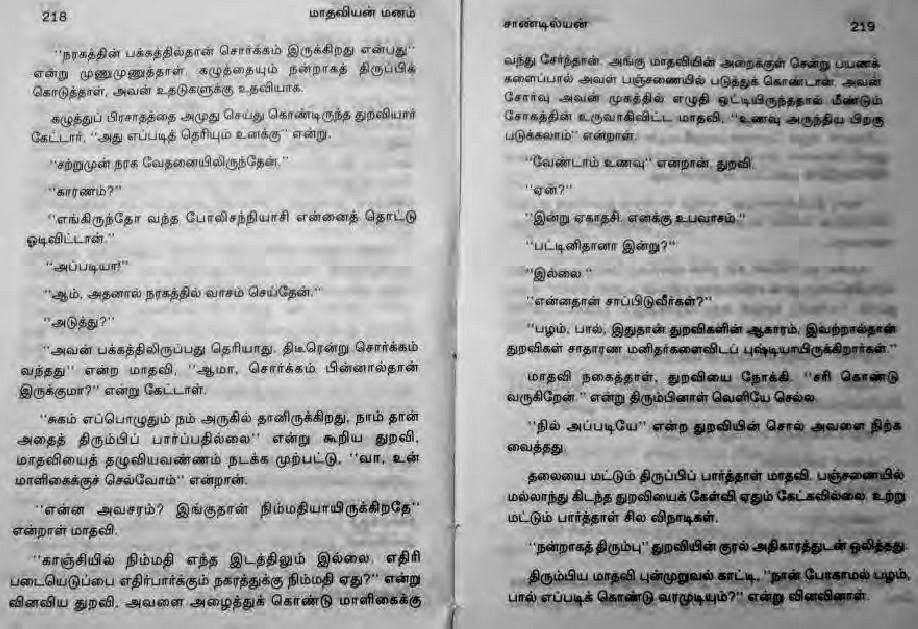 218
மாதவியின் மனம்
"நரகத்தின் பக்கத்தில்தான் சொர்க்கம் இருக்கிறது என்பது"
என்று முணுமுணுத்தாள். கழுத்தையும் நன்றாகத் திருப்பிக்
கொடுத்தாள், அவன் உதடுகளுக்கு உதவியாக.
கழுத்துப் பிரசாதத்தை அமுது செய்து கொண்டிருந்த துறவியார்
கேட்டார், "அது எப்படித் தெரியும் உனக்கு" என்று.
"சற்றுமுன் நரக வேதனையிலிருந்தேன்."
"காரணம்?"
"எங்கிருந்தோ வந்த போலிசந்நியாசி என்னைத் தொட்டு
ஓடிவிட்டான்."
"அப்படியா?"
"ஆம், அதனால் நரகத்தில் வாசம் செய்தேன்."
"அடுத்து?"
"அவன் பக்கத்திலிருப்பது தெரியாது. திடீரென்று சொர்க்கம்
வந்தது" என்ற மாதவி, "ஆமா, சொர்க்கம் பின்னால்தான்
இருக்குமா?" என்று கேட்டாள்.
"சுகம் எப்பொழுதும் நம் அருகில் தானிருக்கிறது, நாம் தான்
அதைத் திரும்பிப் பார்ப்பதில்லை" என்று கூறிய துறவி,
மாதவியைத் தழுவியவண்ணம் நடக்க முற்பட்டு, "வா, உன்
மாளிகைக்குச் செல்வோம்" என்றான்.
"என்ன அவசரம்? இங்குதான் நிம்மதியாயிருக்கிறதே"
என்றாள் மாதவி.
"காஞ்சியில் நிம்மதி எந்த இடத்திலும் இல்லை. எதிரி
படையெடுப்பை எதிர்பார்க்கும் நகரத்துக்கு நிம்மதி ஏது?" என்று
வினவிய துறவி, அவளை அழைத்துக் கொண்டு மாளிகைக்கு
சாண்டில்யன்
219
வந்து சேர்ந்தான். அங்கு மாதவியின் அறைக்குள் சென்று பயணக்
களைப்பால் அவள் பஞ்சணையில் படுத்துக் கொண்டான். அவன்
சோர்வு அவன் முகத்தில் எழுதி ஒட்டியிருந்ததால் மீண்டும்
சோகத்தின் உருவாகிவிட்ட மாதவி, "உணவு அருந்திய பிறகு
படுக்கலாம்" என்றாள்.
"வேண்டாம் உணவு" என்றான். துறவி.
"ஏன்?"
"இன்று ஏகாதசி. எனக்கு உபவாசம்."
"பட்டினிதானா இன்று?"
"இல்லை."
"என்னதான் சாப்பிடுவீர்கள்?"
"பழம், பால், இதுதான் துறவிகளின் ஆகாரம், இவற்றால்தான்
துறவிகள் சாதாரண மனிதர்களைவிடப் புஷ்டியாயிருக்கிறார்கள்."
மாதவி நகைத்தாள், துறவியை நோக்கி. "சரி கொண்டு
வருகிறேன்." என்று திரும்பினாள் வெளியே செல்ல.
"நில் அப்படியே" என்ற துறவியின் சொல் அவளை நிற்க
வைத்தது.
தலையை மட்டும் திருப்பிப் பார்த்தாள் மாதவி. பஞ்சணையில்
மல்லாந்து கிடந்த துறவியைக் கேள்வி ஏதும் கேட்கவில்லை. உற்று
மட்டும் பார்த்தாள் சில விநாடிகள்.
"நன்றாகத் திரும்பு" துறவியின் குரல் அதிகாரத்துடன் ஒலித்தது.
திரும்பிய மாதவி புன்முறுவல் காட்டி, "நான் போகாமல் பழம்,
பால் எப்படிக் கொண்டு வரமுடியும்?" என்று வினவினாள்.